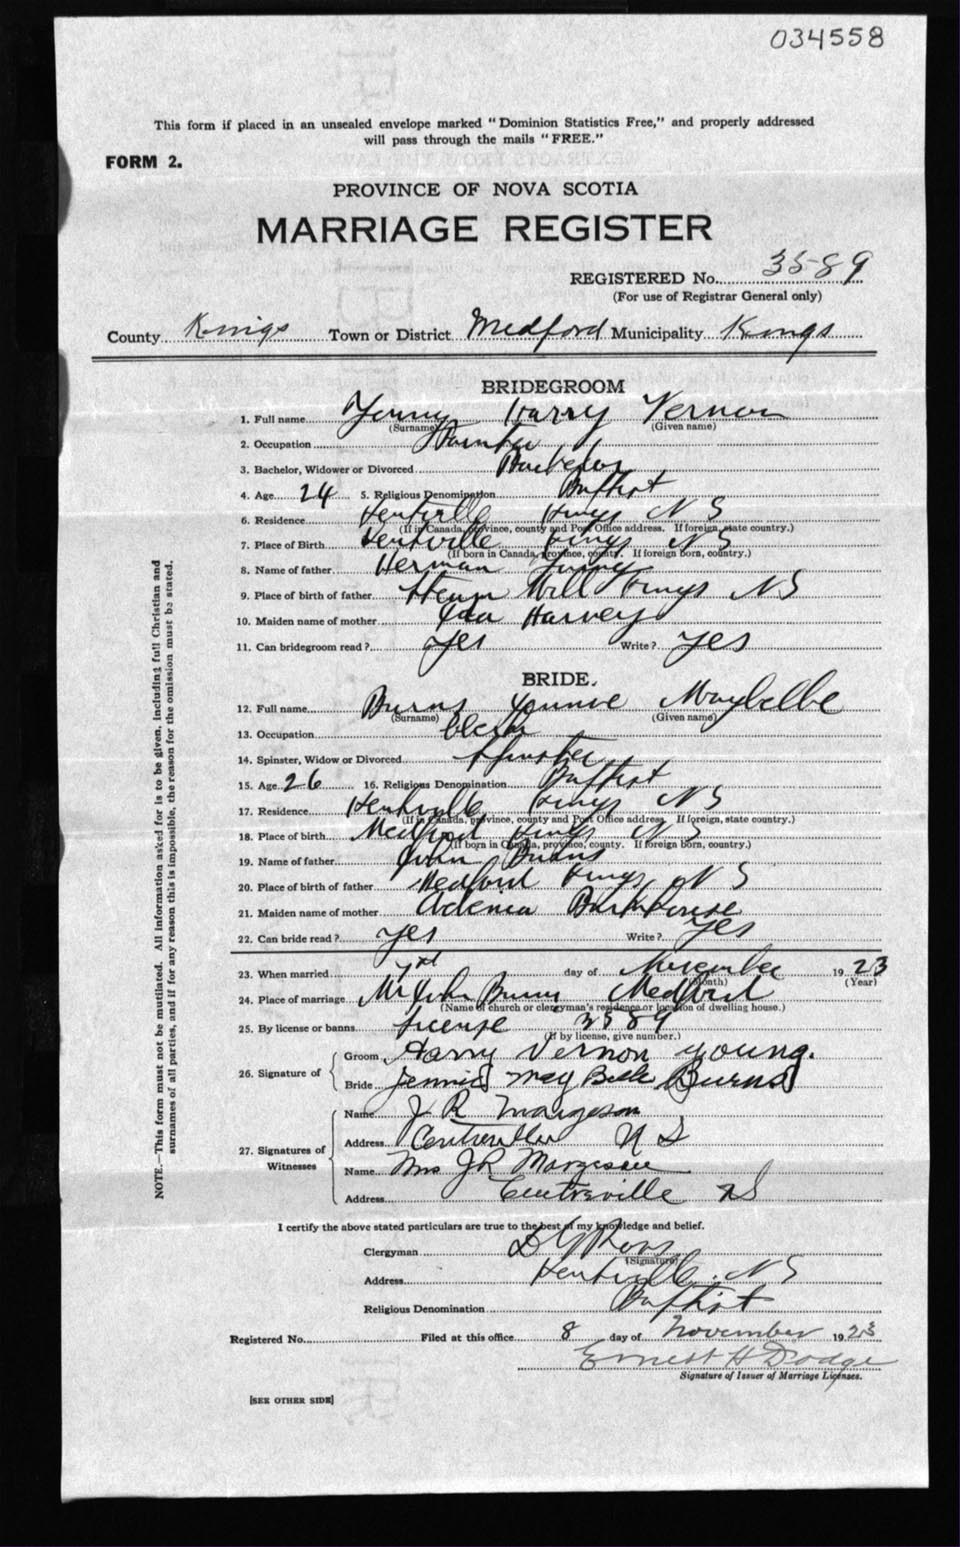 034558
This form if placed in an unsealed envelope marked "Dominion Statistics Free," and properly addressed
will pass through the mails "FREE."
FORM 2.
PROVINCE OF NOVA SCOTIA
MARRIAGE REGISTER
REGISTERED No. 3589
(For use of Registrar General only)
County Kings Town or District Medford Municipality Kings
BRIDEGROOM
1. Full name Young Harry Vernon
(Surname) (Given name)
2. Occupation
3. Bachelor, Widower or Divorced Bachelor
4. Age 24 5. Religious Denomination Baptist
6. Residence Kentville Kings N S
(If in Canada, province, county and Post Office address. If foreign, state country.)
7. Place of Birth Kentville Kings N S
(If born in Canada, province, county. If foreign born, country.)
8. Name of father Herman Young
9. Place of birth of father Mill Kings N S
10. Maiden name of mother Ida Harvey
11. Can bridegroom read? Yes Write? Yes
BRIDE.
12. Full name Burns Maybelle
(Surname) (Given name)
13. Occupation Clerk
14. Spinster, Widow or Divorced Spinster
15. Age 26 16. Religious Denomination Baptist
17. Residence Kentville Kings N S
(If in Canada, province, county and Post Office address. If foreign, state country.)
18. Place of birth Medford Kings N S
(If born in Canada, province, county. If foreign born, country.)
19. Name of father John Burns
20. Place of birth of father Medford Kings N S
21. Maiden name of mother Adenia Barkhouse
22. Can bride read? Yes Write? Yes
23. When married day of November 1923
(Month) (Year)
24. Place of marriage Mr John Burns Medford
(Name of church or clergyman's residence or location of dwelling house.)
25. By license or banns License 3589
(If by license, give number.)
26. Signature of
Groom Harry Vernon Young.
Bride Jennie May Belle Burns
27. Signatures of Witnesses
Name J R Margeson
Address Centreville N S
Name Mrs J R Margeson
Address Centreville N S
I certify the above stated particulars are true to the best of my knowledge and belief.
Clergyman
(Signature)
Address Kentville. N S
Religious Denomination Baptist
Registered No. Filed at this office 8 day of November 1923
Ernest H Dodge
Signature of Issuer of Marriage Licenses.
[SEE OTHER SIDE]
NOTE.—This form must not be mutilated. All information asked for is to be given, including full Christian and
surnames of all parties, and if for any reason this is impossible, the reason for the omission must be stated.